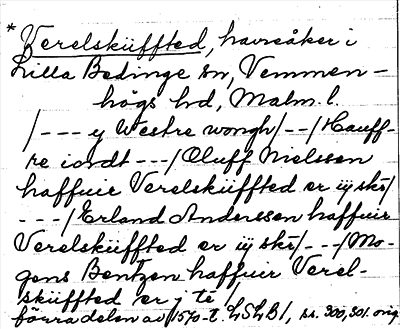 * Verelskiffted, havreåker i
Lilla Bedinge sn, Vemmen-
högs hd, Malm. l.
/--- y Westre wongh/--/Hauff-
re iordt ---/Oluff Nielssen
haffuir Verelskiffted er iij skr/
---/Erland Anderssen haffuir
Verelskiffted er iij skr/---/Mo-
gens Bentzen haffuir Verel-
skiffted er j te /
förra delen av 1570-t. LSLB1, ss. 300, 301. orig.